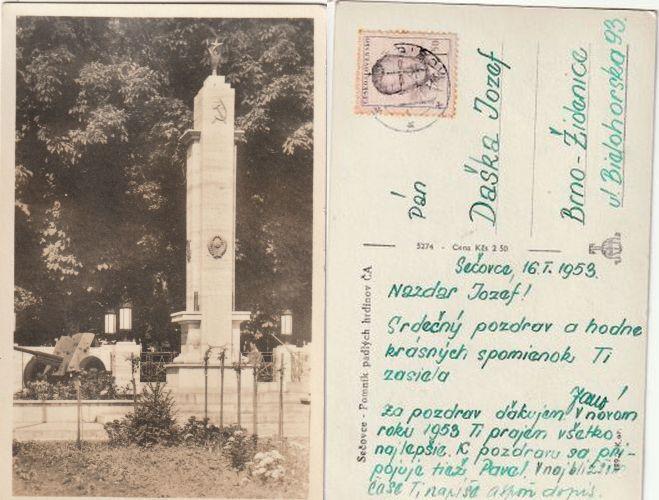 ČESKOSLOVENSKO
Pán
Daška Jozef
Brno-Židenice
ul. Bielohorska 93.
5274 - Cena Kčs 2 50
Sečovce - Pomník padlých hrdinov ČA
Sečovce, 16.I.1953.
Nazdar Jozef!
Srdečný pozdrav a hodne
krásných spomienok Ti
zasiela
Za pozdrav ďakujem. V novom
roku 1953 Ti prajem všetko
najlepšie. K pozdravu sa pri-
pojuje tiež Pavel. V najbližšom
čase Ti napíše aspoň dopis.